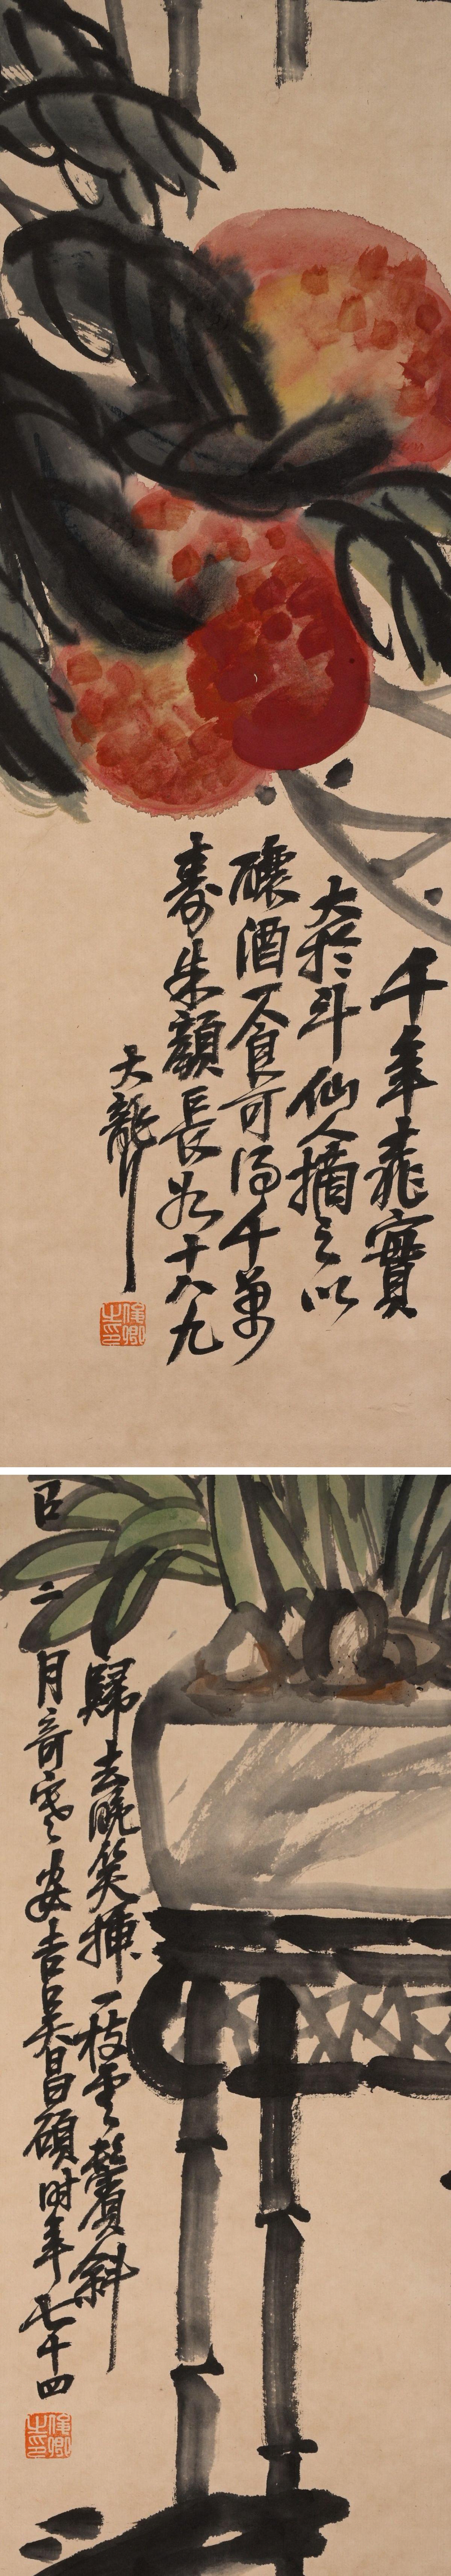 千年桃實
大於斗仙人摘之以
釀酒一食可得千萬
壽朱顏長如十八九
大聾
俊卿之印
歸去晚笑插一枝雲鬢斜
巳二月奇寒安吉吳昌碩時年七十四
俊卿之印